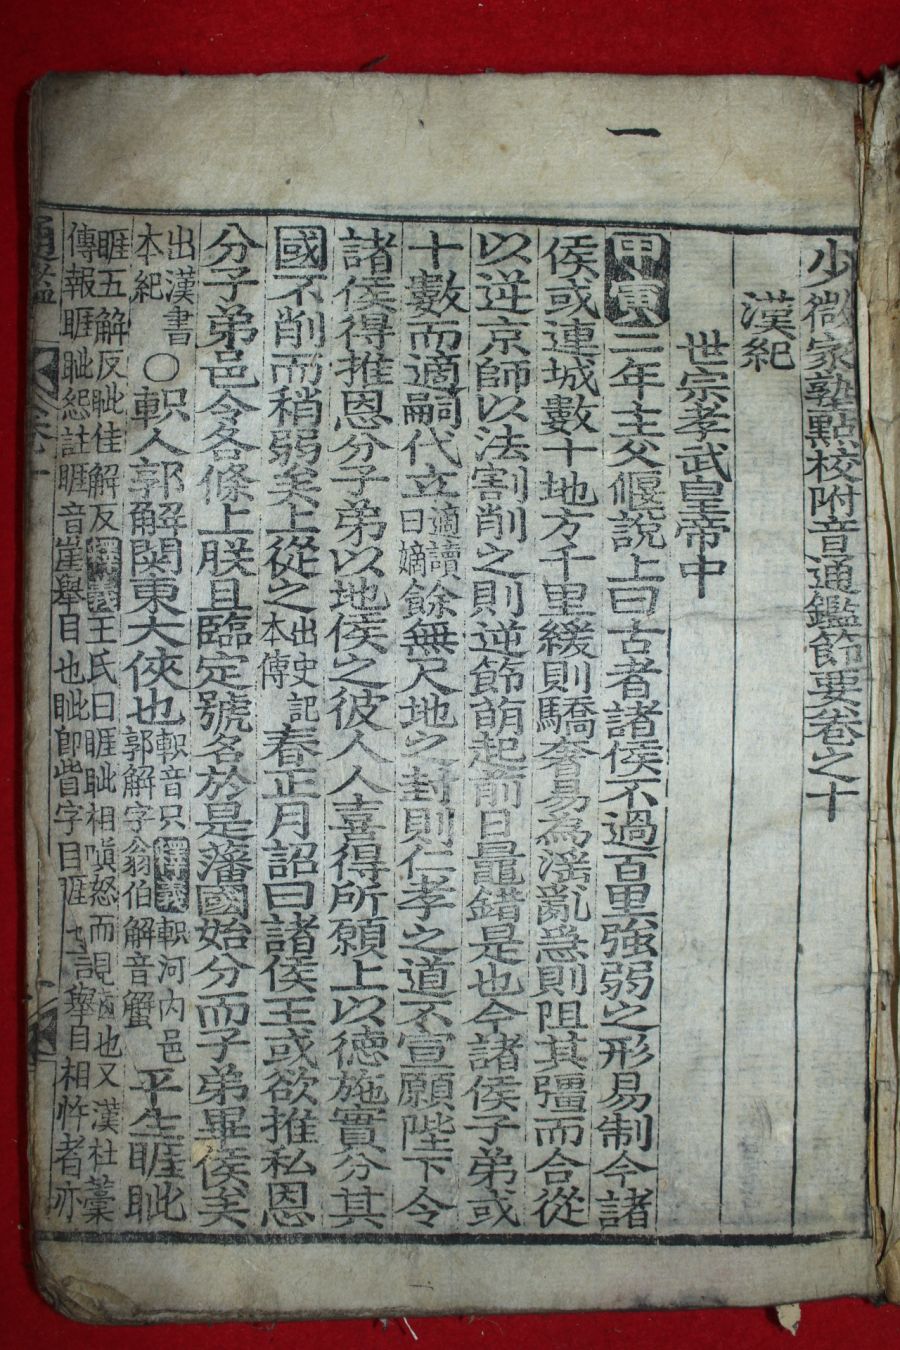 一
少微家塾點校附音通鑑節要卷之十
漢紀
世宗孝武皇帝中
甲寅二年主父偃說上曰古者諸侯不過百里強弱之形易制今諸
侯或連城數十地方千里緩則驕奢易爲淫亂急則阻其彊而合從
以逆京師以法割削之則逆節萌起前日鼂錯是也今諸侯子弟或
十數而適嗣代立適讀曰嫡餘無尺地之封則仁孝之道不宣願陛下令
諸侯得推恩分子弟以地侯之彼人人喜得所願上以德施實分其
國不削而稍弱矣上從之出史記本傳春正月詔曰諸侯王或欲推私恩
分子弟邑令各條上朕且臨定號名於是藩國始分而子弟畢侯矣
出漢書本紀○軹人郭解関東大俠也軹音只釋義軹河內邑郭解字翁伯解音蟹平生睚眦
睚五解反眦仕解反釋義王氏曰睚眦相嗔怒而見齒也又漢杜藁
傳報睚眦怨註睚音崖舉目也眦即眥字目匡也言舉目相忤者亦
通鑑
卷十